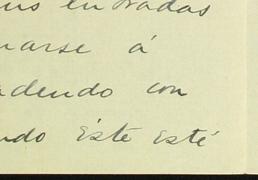 sus entradas
narse á
adendo con
ndo éste esté